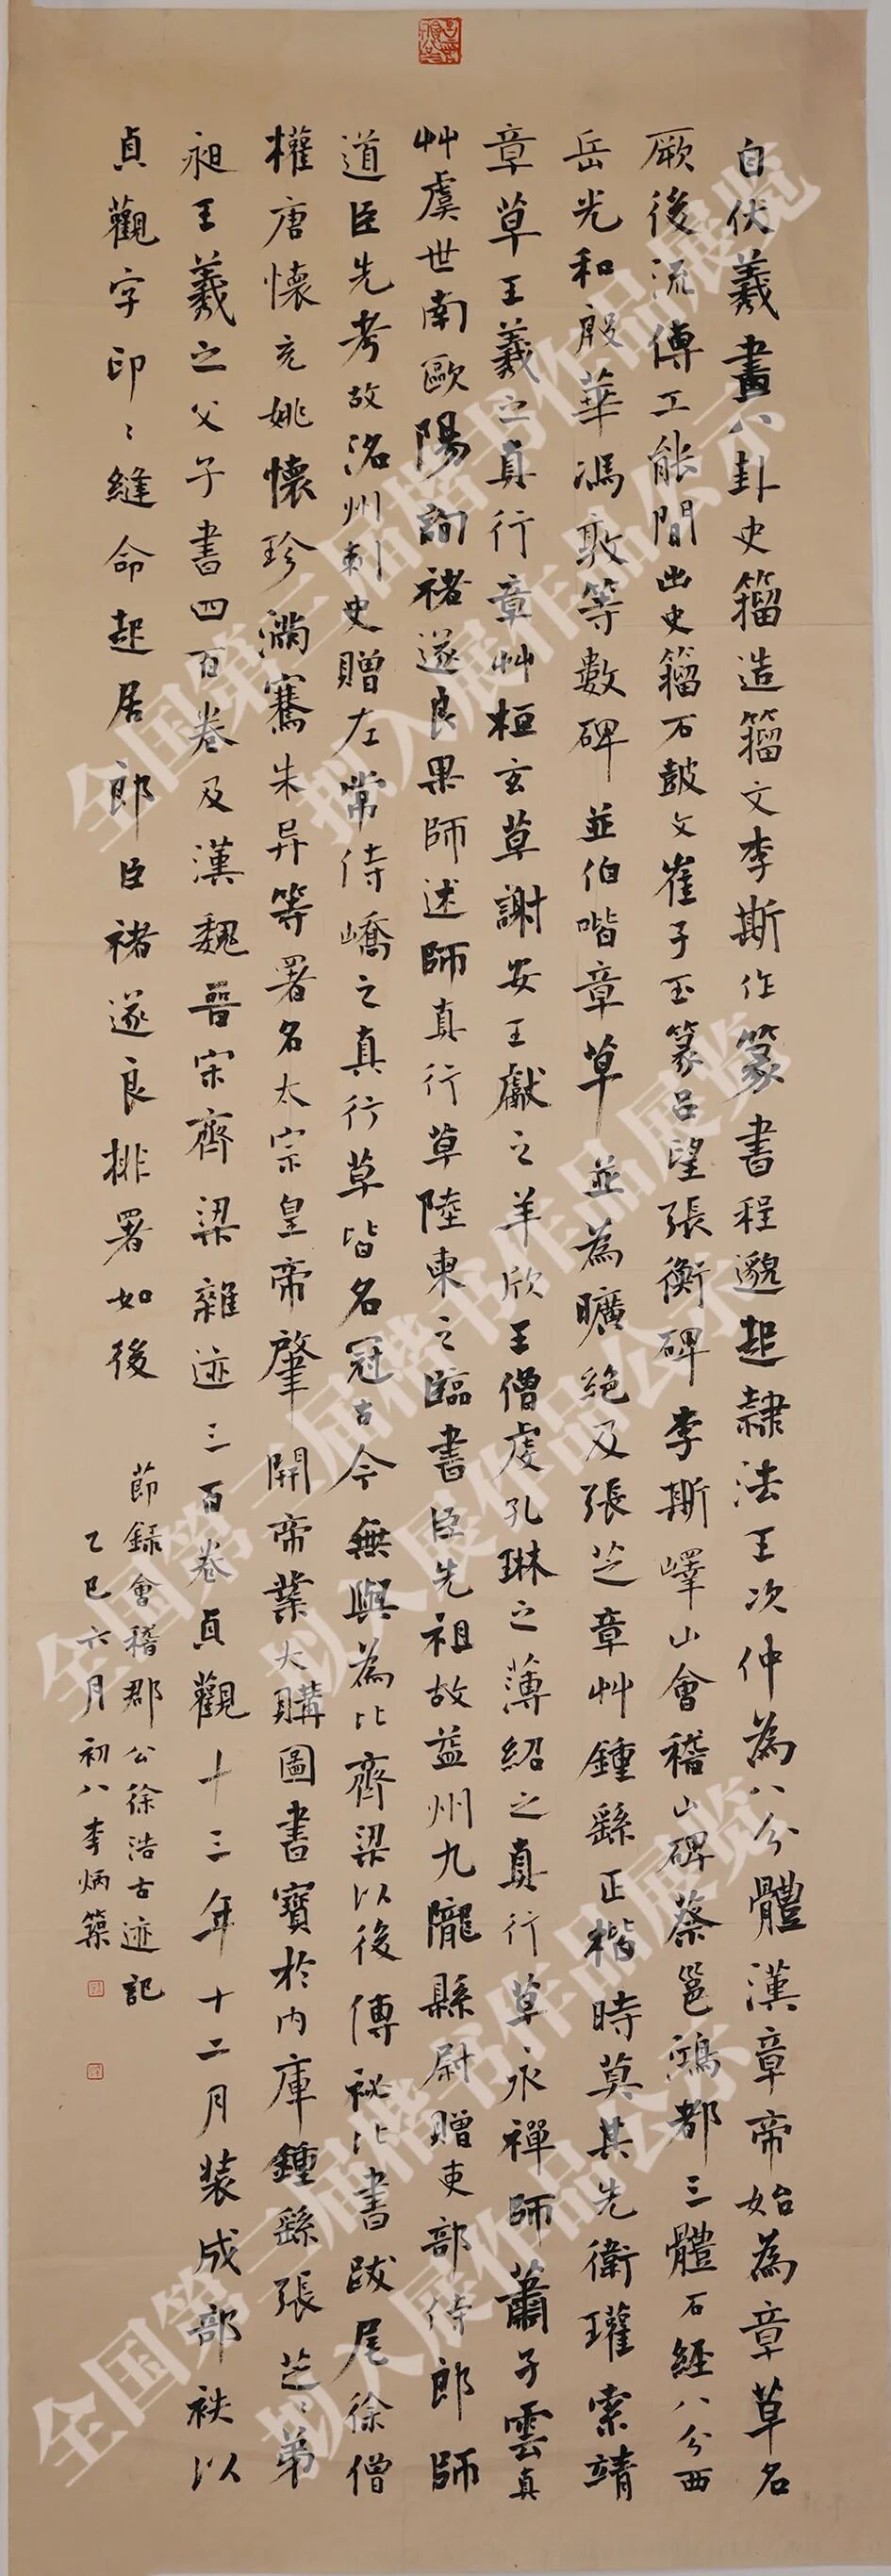 自伏羲畫八卦史籀造籀文李斯作篆書程邈起隷法王次仲為八分體漢章帝始為章草名
厥後流傳工能間出史籀石鼓文崔子玉篆呂望張衡碑李斯嶧山會稽山碑蔡邕鴻都三體石經八分西
岳光和殷華馮敦等數碑並伯喈章草並為曠絕及張芝章艸鍾繇正楷時莫其先衛瓘索靖
章草王羲之真行章艸桓玄草謝安王獻之羊欣王僧虔孔琳之薄紹之真行草永禪師蕭子雲真
艸虞世南歐陽詢褚遂良果師述師真行草陸柬之臨書臣先祖故益州九隴縣尉贈吏部侍郎師
道臣先考故洺州刺史贈左常侍嶠之真行草皆名冠古今無與為比齊梁以後傳秘比書跋尾徐僧
權唐懷充姚懷珍滿騫朱异等署名太宗皇帝肇開帝業大購圖書寶於內庫鍾繇張芝〻弟
昶王羲之父子書四百卷及漢魏晉宋齊梁雜迹三百卷貞觀十三年十二月装成部袟以
貞觀字印〻縫命起居郎臣褚遂良排署如後
節録會稽郡公徐浩古迹記
乙巳六月初八李炳築
全国第三届楷书作品展览
拟入展作品公示
全国第三届楷书作品展览
拟入展作品公示
全国第三届楷书作品展览
拟入展作品公示